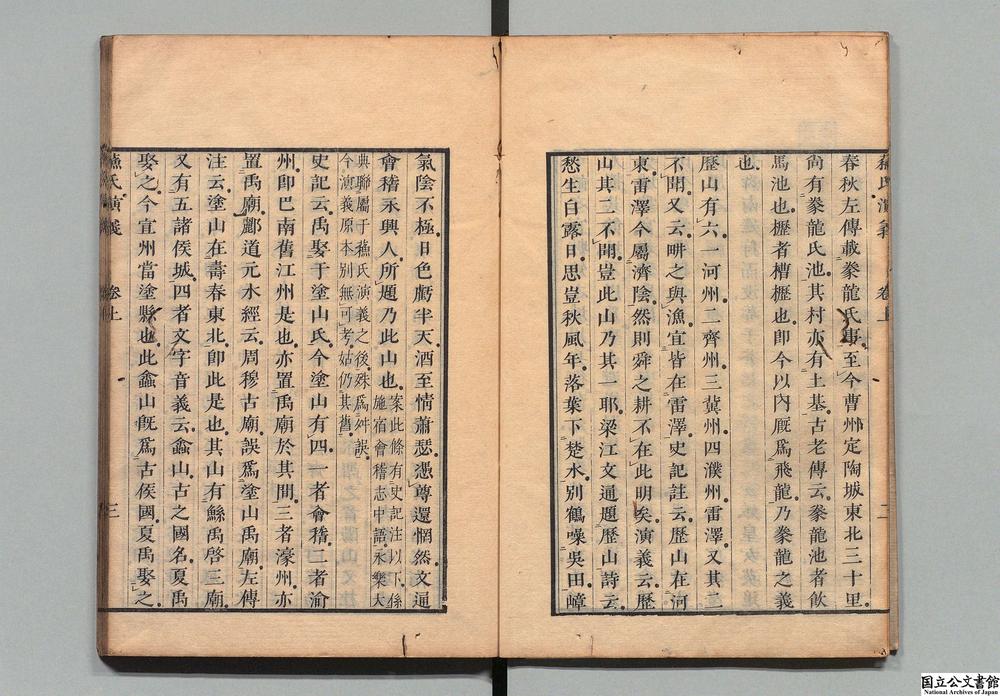 蘇氏演義 卷上 二
春秋左傳載豢龍氏事至今曹州定陶城東北三十里
尚有豢龍氏池其村亦有土基古老傳云豢龍池者飲
馬池也櫪者槽櫪也卽今以內厩爲飛龍乃豢龍之義
也
歷山有六一河州二齊州三冀州四濮州雷澤又其二
不聞又云畊之與漁宜皆在雷澤史記註云歷山在河
東雷澤今屬濟陰然則舜之耕不在此明矣演義云歷
山其二不聞豈此山乃其一耶梁江文通題歷山詩云
愁生白露日思豈秋風年落葉下楚水別鶴噪吳田嶂
氣陰不極日色虧半天酒至情蕭瑟憑尊還惘然文通
會稽永興人所題乃此山也案此條有史記注以下係
施宿會稽志中語永樂大
典聯屬于蘇氏演義之後殊爲舛誤
今演義原本別無可考姑仍其舊
史記云禹娶于塗山氏今塗山有四一者會稽二者渝
州卽巴南舊江州是也亦置禹廟於其間三者濠州亦
置禹廟酈道元水經云周穆古廟誤爲塗山禹廟左傳
注云塗山在壽春東北卽此是也其山有鯀禹啓三廟
又有五諸侯城四者文字音義云嵞山古之國名夏禹
娶之今宜州當塗縣也此嵞山旣爲古侯國夏禹娶之
蘇氏演義 卷上 三
国立公文書館
National Archives of Japan